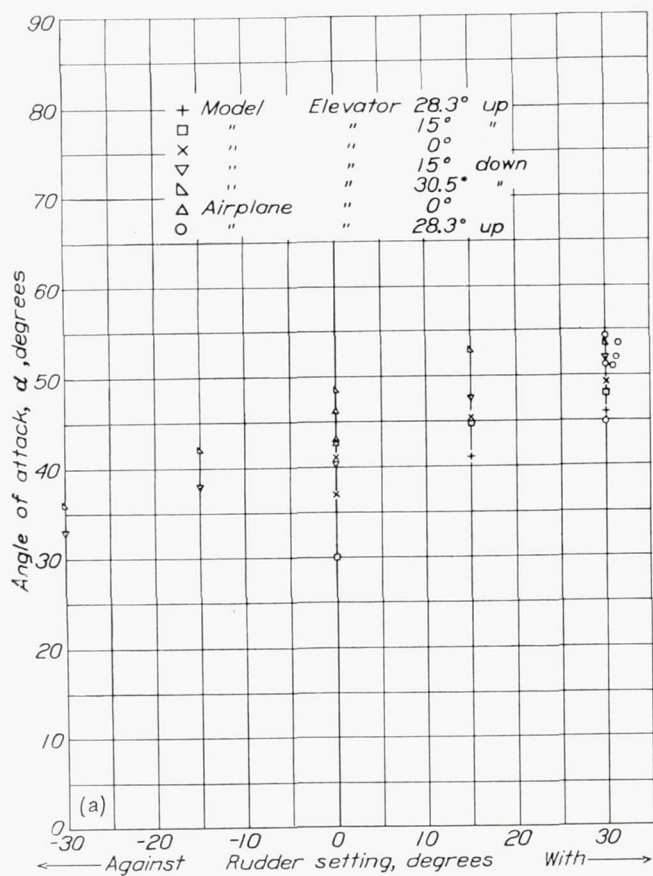 90
80
70
60
50
40
30
20
10
0
Angle of attack, α, degrees
+ Model Elevator 28.3° up
□ " " 15° "
× " " 0°
▽ " " 15° down
◺ " " 30.5° "
△ Airplane " 0°
○ " " 28.3° up
(a)
-30 -20 -10 0 10 20 30
← Against Rudder setting, degrees With →